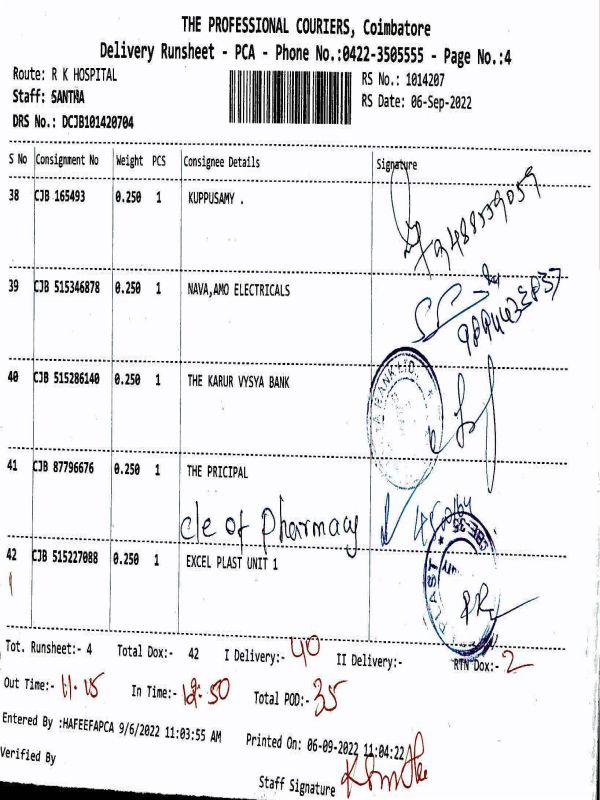 THE PROFESSIONAL COURIERS, Coimbatore
Delivery Runsheet - PCA - Phone No.:0422-3505555 - Page No.:4
Route: R K HOSPITAL
RS No.: 1014207
Staff: SANTHA
RS Date: 06-Sep-2022
DRS No.: DCJB101420704
S No Consignment No Weight PCS Consignee Details Signature
38 CJB 165493 0.250 1 KUPPUSAMY .
39 CJB 515346878 0.250 1 NAVA,AMO ELECTRICALS
40 CJB 515286140 0.250 1 THE KARUR VYSYA BANK
41 CJB 87796676 0.250 1 THE PRICIPAL
cle of Pharmacy
42 CJB 515227088 0.250 1 EXCEL PLAST UNIT 1
Tot. Runsheet:- 4 Total Dox:- 42 I Delivery:- 40 II Delivery:- RTN Dox:- 2
Out Time:- 11.15 In Time:- 12.50 Total POD:- 35
Entered By :HAFEEFAPCA 9/6/2022 11:03:55 AM Printed On: 06-09-2022 11:04:22
Verified By
Staff Signature